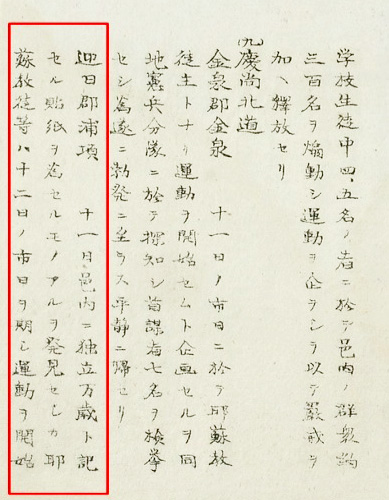 学校生徒中四、五名ノ者ニ於テ邑内ノ群衆約
三百名ヲ煽動シ運動ヲ企ヲシヲ以テ嚴戒ヲ
加ヘ釋放セリ
九、慶尚北道
金泉郡金泉　十一日ノ市日ニ於テ耶蘇教
徒主トナリ運動ヲ開始セムト企画セルヲ同
地憲兵分隊ニ於テ探知シ首謀者七名ヲ検挙
セシ為遂ニ勃発ニ至ラス平静ニ帰セリ
迎日郡浦項　十一日邑内ニ独立万歳ト記
セル貼紙ヲ為セルモノアルヲ発見セシカ耶
蘇教徒等ハ十二日ノ市日ヲ期シ運動ヲ開始